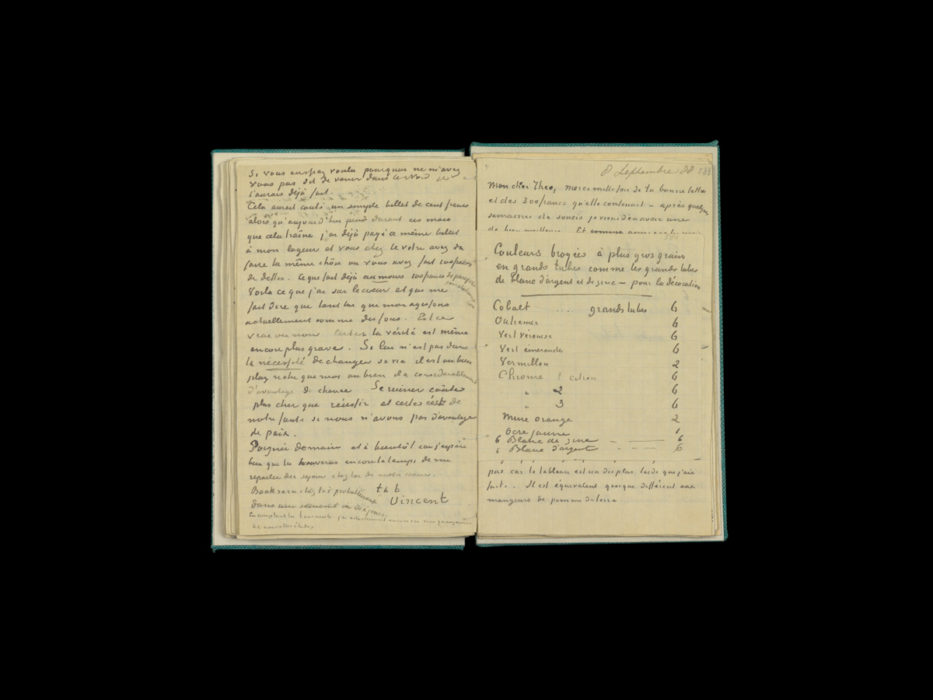 Si vous aussiez voulu pourquoi ne m'avez
vous pas dit de venir dans le Nord je
l'aurais déjà fait.
Cela aurait couté un simple billet de cent francs
alors qu'aujourd'hui pend durant ces mois
que cela traîne j'ai déjà payé ce même billet
à mon logeur et vous chez le votre avez du
faire la même chôse ou vous avez fait 100 francs
de dettes. Ce que fait déjà au moins 200 francs
Voila ce que j'ai sur le cœur et que me
fait dire que tant lui que moi agissons
actuellement comme des fous. Est ce
vrai ou non. la vérité est même
encore plus grave. Se lui n'est pas dans
la nécessité de changer sa vie il est ou bien
plus riche que moi ou bien il a considerablement
d'avantage de chance Se ruiner coûte
plus cher que réussir et certes c'est de
notre faute si nous n'avons pas davantage
de paix.
Poignée de main et à bientôt car j'espère
bien que tu trouveras encore le temps de me
reparler des sejours
t à t
Vincent
8 Septembre 88
Mon cher Theo, merci mille fois de ta bonne lettre
et des 300 francs qu'elle contenait – après quelques
semaines de soucis je viens d'en avoir une
de bien meilleure. Et comme
Couleurs broyées à plus gros grain
en grands tubes comme les grands tubes
de blanc d'argent et de zinc – pour la décoration
Cobalt ... grands tubes 6
Outremer 6
Vert véronèse 6
Vert émeraude 6
Vermillon 2
Chrome 1 citron 6
" 2 6
" 3 6
Mine orange 2
Ocre jaune 1
6 Blanc de zinc — 6
6 Blanc d'argent — 6
pas car le tableau est un des plus laids que j'aie
faits. Il est équivalent quoique différent aux
mangeurs de pommes de terre